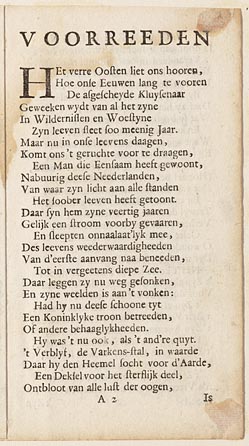 VOORREEDEN
HEt verre Oosten liet ons hooren,
Hoe onse Eeuwen lang te vooren
De afgescheyde Kluysenaar
Geweeken wydt van al het zyne
In Wildernissen en Woestyne
Zyn leeven sleet soo meenig Jaar.
Maar nu in onse leevens daagen,
Komt ons 't geruchte voor te draagen,
Een Man die Eensaam heeft gewoont,
Nabuurig deese Neederlanden,
Van waar zyn licht aan alle standen
Het soober leeven heeft getoont.
Daar syn hem zyne veertig jaaren
Gelijk een stroom voorby gevaaren,
En sleepten onnaalaat'lyk mee,
Des leevens weederwaardigheeden
Van d'eerste aanvang naa beneeden,
Tot in vergeetens diepe Zee.
Daar leggen zy nu weg gesonken,
En zyne weelden is aan 't vonken:
Had hy nu deese schoone tyt
Een Koninklyke troon betreeden,
Of andere behaaglykheeden.
Hy was 't nu ook, als 't and're quyt.
't Verblyf, de Varkens-stal, in waarde
Daar hy den Heemel socht voor d'Aarde,
Een Deksel voor het sterflijk deel,
Ontbloot van alle lust der oogen,
A 2 Is